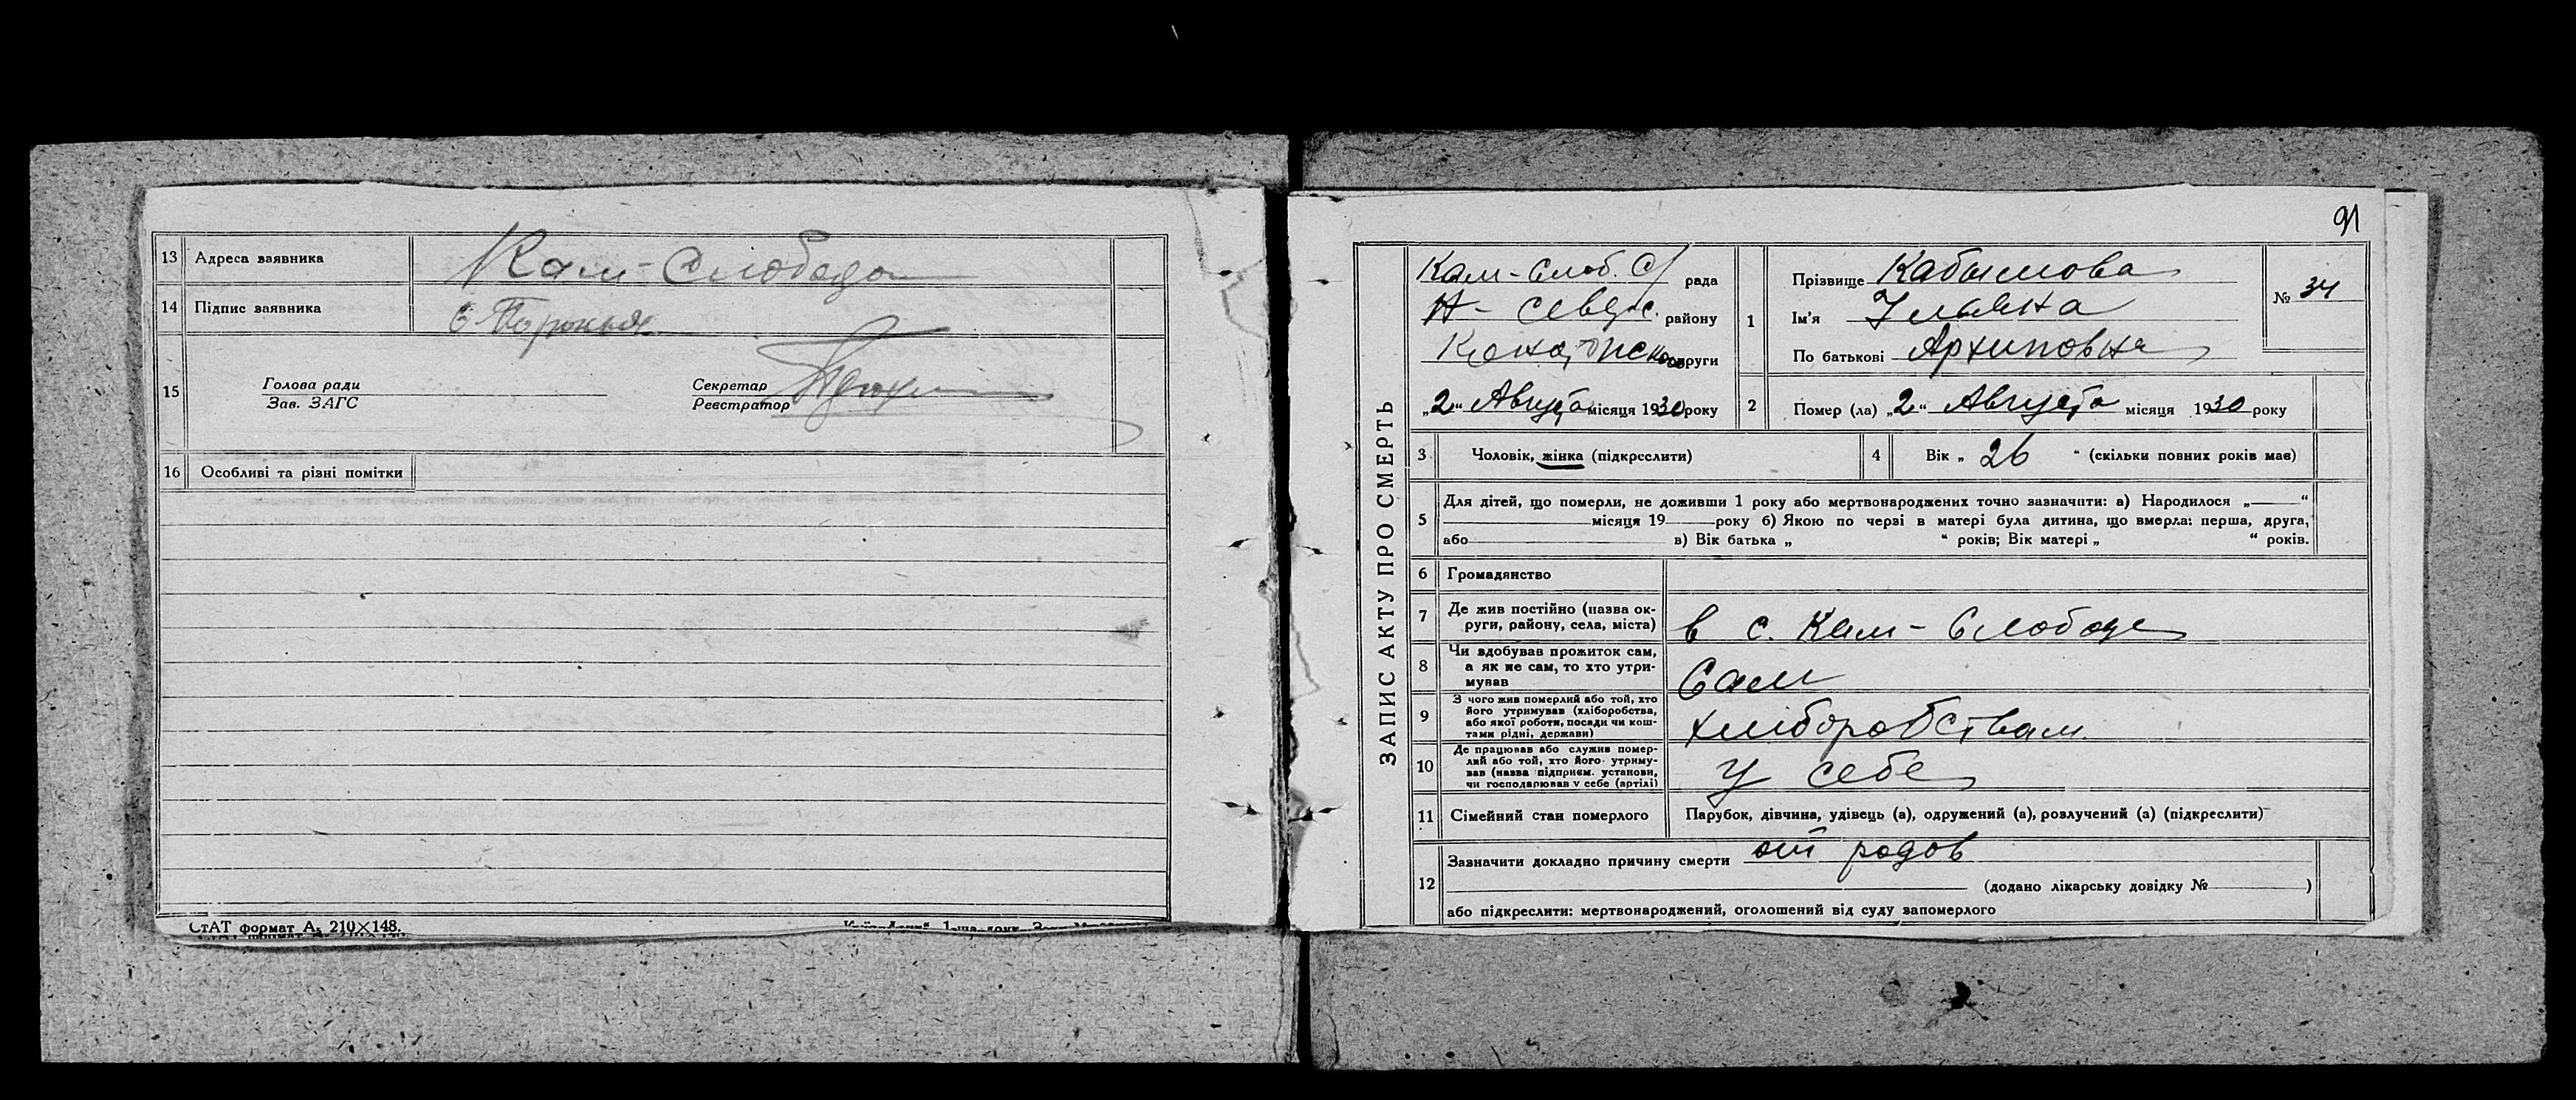 13 Адреса заявника Кам-Слобода
14 Підпис заявника
15 Голова ради
Зав. ЗАГС
Секретар
Реєстратор
16 Особливі та різні помітки
СтАТ формат А5 210×148.
91
ЗАПИС АКТУ ПРО СМЕРТЬ
Кам-Слоб. С/ рада
Н-Северс. району
Конотопской округи
„2“ Августа місяця 1930 року
1 Прізвище Кабымова
Ім'я Ульяна
По батькові Архиповна
№ 34
2 Помер (ла) „2“ Августа місяця 1930 року
3 Чоловік, жінка (підкреслити)
4 Вік „ 26 “ (скільки повних років мав)
5 Для дітей, що померли, не доживши 1 року або мертвонароджених точно зазначити: а) Народилося „ “
місяця 19 року б) Якою по черзі в матері була дитина, що вмерла: перша, друга,
або в) Вік батька „ “ років; Вік матері „ “ років.
6 Громадянство
7 Де жив постійно (назва ок-
руги, району, села, міста) в с. Кам-Слободе
8 Чи здобував прожиток сам,
а як не сам, то хто утри-
мував Сам
9 З чого жив померлий або той, хто
його утримував (хліборобства,
або якої роботи, посади чи кош-
тами рідні, держави) хліборобствам
10 Де працював або служив помер-
лий або той, хто його утриму-
вав (назва підприєм. установи,
чи господарював у себе (артілі) У себе
11 Сімейний стан померлого Парубок, дівчина, удівець (а), одружений (а), розлучений (а) (підкреслити)
12 Зазначити докладно причину смерти от родов
(додано лікарську довідку № )
або підкреслити: мертвонароджений, оголошений від суду запомерлого